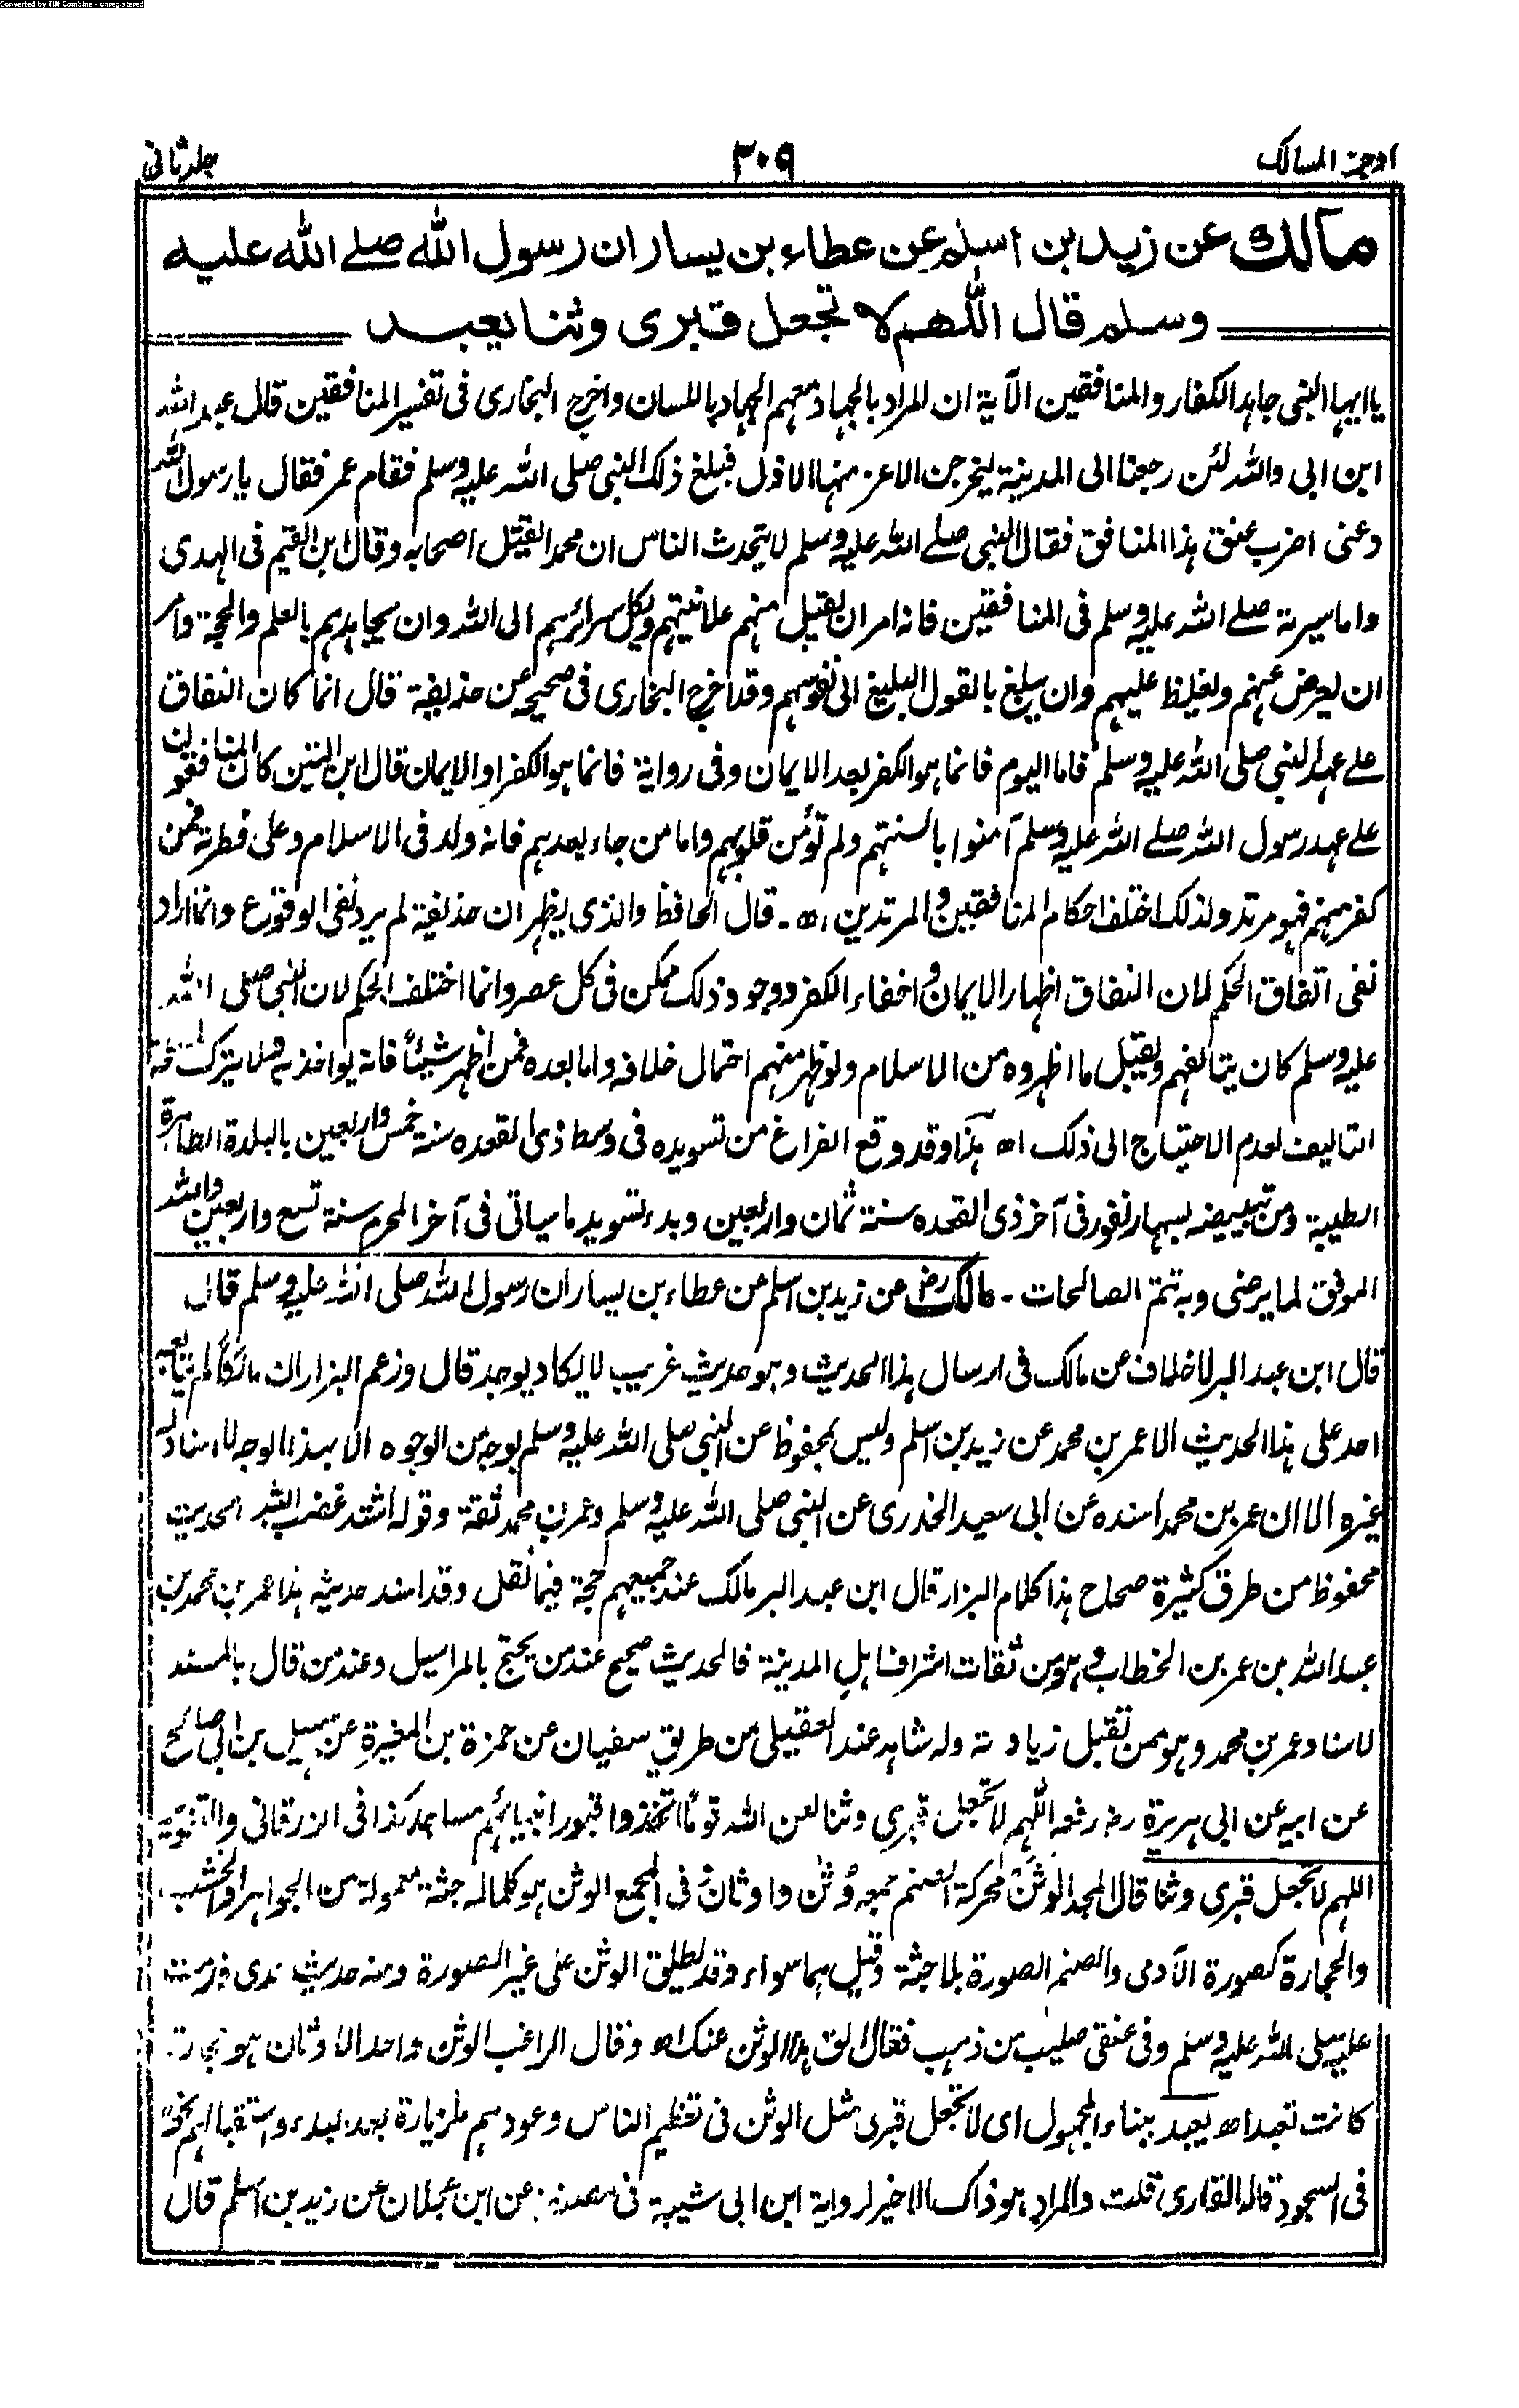 Converted by Tiff Combine - unregistered
اوجز المسالك
٣٠٩
جلد ثانی
مالك عن زيد بن اسلم عن عطاء بن يسار ان رسول الله صلے الله عليه
وسلم قال اللهم لا تجعل قبری وثنا يعبد
يا ايها النبی جاهد الكفار والمنافقين الآية ان المراد بالجهاد معهم الجهاد باللسان واخرج البخاری فی تفسير المنافقين قال عبد الله
ابن ابی والله لئن رجعنا الى المدينة ليخرجن الاعز منها الاذل فبلغ ذلك النبی صلی الله عليه وسلم فقام عمر فقال يا رسول الله
دعنی اضرب عنق هذا المنافق فقال النبی صلے الله عليه وسلم لا يتحدث الناس ان محمدا يقتل اصحابه وقال ابن القيم فی الهدی
واما سيرته صلے الله عليه وسلم فی المنافقين فانه امر ان يقبل منهم علانيتهم ويكل سرائرهم الى الله وان يجاهدهم بالعلم والحجة وامر
ان يعرض عنهم ويغلظ عليهم وان يبلغ بالقول البليغ الى نفوسهم وقد اخرج البخاری فی صحيحه عن حذيفة قال انما كان النفاق
علے عهد النبی صلی الله عليه وسلم فاما اليوم فانما هو الكفر بعد الايمان وفی رواية فانما هو الكفر او الايمان قال ابن التين كان المنافقون
علے عهد رسول الله صلے الله عليه وسلم آمنوا بالسنتهم ولم تؤمن قلوبهم واما من جاء بعدهم فانه ولد فی الاسلام وعلى فطرته فمن
كفر منهم فهو مرتد ولذلك اختلف احكام المنافقين والمرتدين اه۔ قال الحافظ والذی يظهر ان حذيفة لم يرد نفی الوقوع وانما اراد
نفی اتفاق الحكم لان النفاق اظهار الايمان واخفاء الكفر ووجود ذلك ممكن فی كل عصر وانما اختلف الحكم لان النبی صلی الله
عليه وسلم كان يتألفهم ويقبل ما اظهروه من الاسلام ولو ظهر منهم احتمال خلافه واما بعده فمن اظهر شيئاً فانه يواخذ به ولا يترك لمصلحة
التاليف لعدم الاحتياج الى ذلك اه هذا وقد وقع الفراغ من تسويده فی وسط ذی القعده سنة خمس واربعين بالبلدة الطاهرة
الطيبة ومن تبييضه بسهارنفور فی آخر ذی القعده سنة ثمان واربعين وبدء تسويد ما سياتی فی آخر المحرم سنة تسع واربعين والله
الموفق لما يرضی وبه تتم الصالحات ۔ مالك رض عن زيد بن اسلم عن عطاء بن يسار ان رسول الله صلی الله عليه وسلم قال
قال ابن عبد البر لا خلاف عن مالك فی ارسال هذا الحديث وهو حديث غريب لا يكاد يوجد قال وزعم البزار ان مالكاً لم يتابعه
احد على هذا الحديث الا عمر بن محمد عن زيد بن اسلم وليس بمحفوظ عن النبی صلی الله عليه وسلم بوجه من الوجوه الا بهذا الوجه لا اسناد له
غيره الا ان عمر بن محمد اسنده عن ابی سعيد الخدری عن النبی صلی الله عليه وسلم وعمر بن محمد ثقة وقوله اشتد غضب الله الحديث
محفوظ من طرق كثيرة صحاح هذا كلام البزار قال ابن عبد البر مالك عند جميعهم حجة فيما نقل وقد اسند حديثه هذا عمر بن محمد بن
عبد الله بن عمر بن الخطاب وهو من ثقات اشراف اهل المدينة فالحديث صحيح عند من يحتج بالمراسيل وعند من قال بالمسند
لاسناد عمر بن محمد وهو ممن تقبل زيادته وله شاهد عند العقيلی من طريق سفيان عن حمزة بن المغيرة عن سهيل بن ابی صالح
عن ابيه عن ابی هريرة رض رفعه اللهم لا تجعل قبری وثنا لعن الله قوماً اتخذوا قبور انبيائهم مساجد كذا فی الزرقانی والتنوير
اللهم لا تجعل قبری وثنا قال المجد الوثن محركة الصنم جمعه وُثْن واوثان وفی المجمع الوثن هو كل ماله جثة معمولة من الجواهر او الخشب
والحجارة كصورة الآدمی والصنم الصورة بلا جثة وقيل هما سواء وقد يطلق الوثن على غير الصورة ومنه حديث عدی قدمت
عليه صلی الله عليه وسلم وفی عنقی صليب من ذهب فقال الق هذا الوثن عنك اه وقال الراغب الوثن واحد الاوثان هو حجارة
كانت تعبد اه يعبد ببناء المجهول ای لا تجعل قبری مثل الوثن فی تعظيم الناس وعودهم للزيارة بعد بدء واستقبالهم نحوه
فی السجود قاله القاری قلت والمراد هو ذاك الاخير لرواية ابن ابی شيبة فی مصنفه عن ابن عجلان عن زيد بن اسلم قال